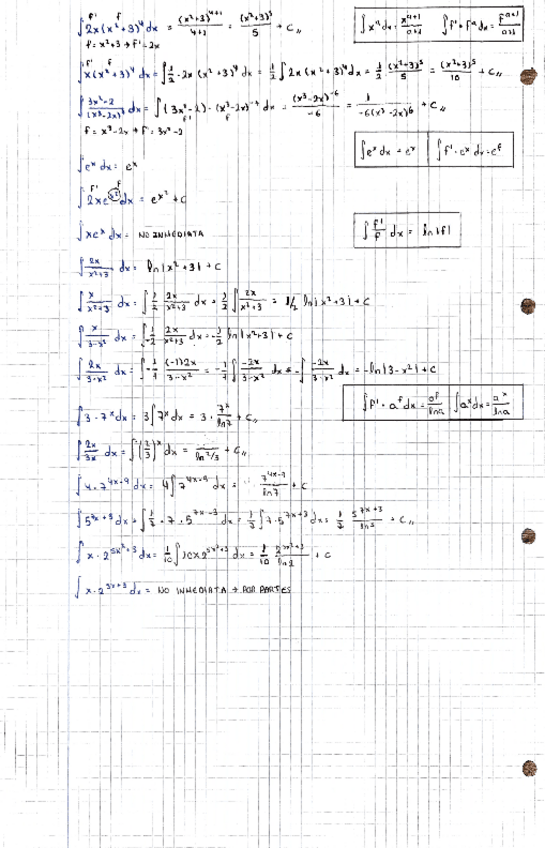 f' f
∫2x(x²+3)⁴dx = (x²+3)⁴⁺¹/4+1 = (x²+3)⁵/5 + C,,
f = x²+3 → f' = 2x
∫xⁿdx = xⁿ⁺¹/n+1 ∫f'·fⁿdx = fⁿ⁺¹/n+1
f' f
∫x(x²+3)⁴dx = ∫1/2·2x(x²+3)⁴dx = 1/2∫2x(x²+3)⁴dx = 1/2·(x²+3)⁵/5 = (x²+3)⁵/10 + C,,
∫(3x²-2)/(x³-2x)⁷ dx = ∫(3x²-2)·(x³-2x)⁻⁷dx = (x³-2x)⁻⁶/-6 = 1/-6(x³-2x)⁶ + C,,
f = x³-2x → f' = 3x²-2
∫eˣdx = eˣ ∫f'·eˣdx = eᶠ
∫eˣdx = eˣ
f' f
∫2xe^(x²)dx = e^(x²) + C
∫xeˣdx = NO INMEDIATA
∫f'/f dx = ln|f|
∫2x/(x²+3) dx = ln|x²+3| + C
∫x/(x²+3) dx = ∫1/2 2x/(x²+3) dx = 1/2∫2x/(x²+3) = 1/2 ln|x²+3| + C
∫2x/(3-x²) dx = ∫-1/1 (-1)2x/(3-x²) dx = -1/1∫-2x/(3-x²) dx = -∫-2x/(3-x²) dx = -ln|3-x²| + C
∫f'·aᶠdx = aᶠ/lna ∫aˣdx = aˣ/lna
∫3·7ˣdx = 3∫7ˣdx = 3·7ˣ/ln7 + C,,
∫4·7⁴ˣ⁻⁹dx = 4∫7⁴ˣ⁻⁹dx =
∫x·2^(5x²+3)dx = 1/10∫10x2^(5x²+3)dx = 1/10 2^(5x²+3)/ln2 + C
∫x·2^(5x+3)dx = NO INMEDIATA → POR PARTES